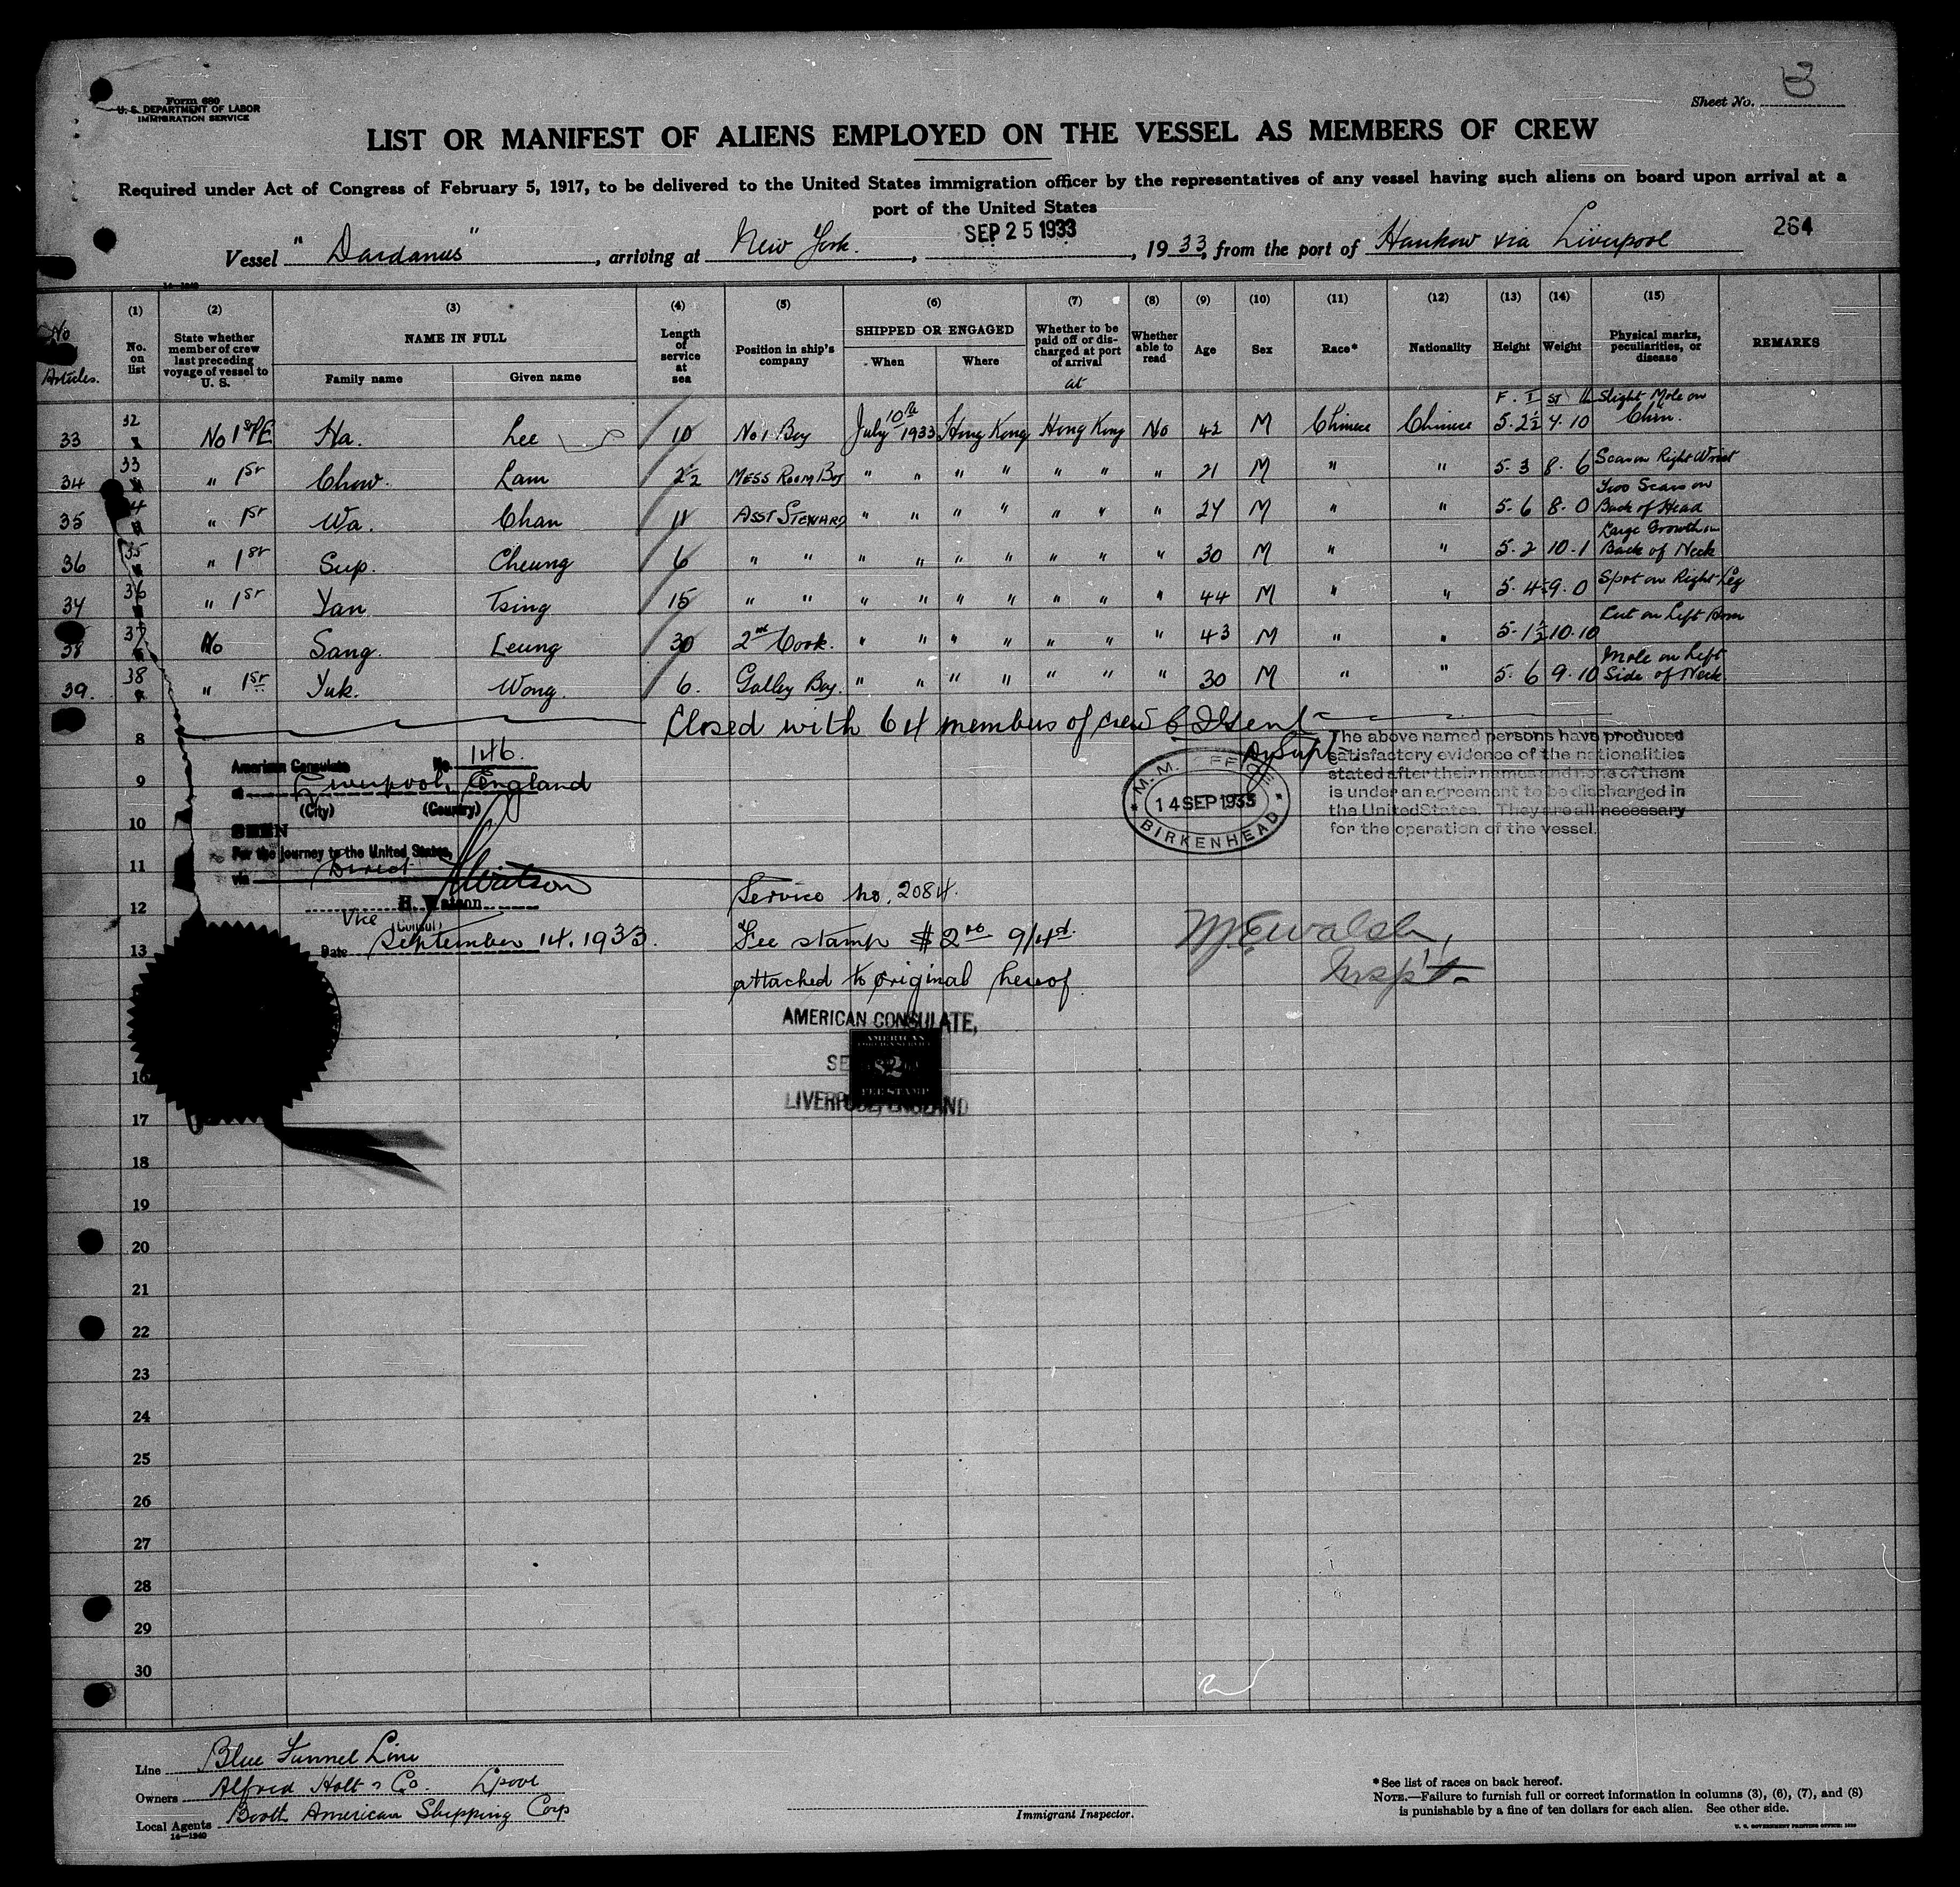 Form 680
U. S. DEPARTMENT OF LABOR
IMMIGRATION SERVICE
Sheet No. 3
LIST OR MANIFEST OF ALIENS EMPLOYED ON THE VESSEL AS MEMBERS OF CREW
Required under Act of Congress of February 5, 1917, to be delivered to the United States immigration officer by the representatives of any vessel having such aliens on board upon arrival at a
port of the United States
Vessel "Dardanus", arriving at New York, SEP 25 1933, 1933, from the port of Hankow via Liverpool
264
14—1240
No
Articles.
(1) No. on list
(2) State whether member of crew last preceding voyage of vessel to U. S.
(3) NAME IN FULL
Family name
Given name
(4) Length of service at sea
(5) Position in ship's company
(6) SHIPPED OR ENGAGED
When
Where
(7) Whether to be paid off or discharged at port of arrival
at
(8) Whether able to read
(9) Age
(10) Sex
(11) Race*
(12) Nationality
(13) Height
(14) Weight
(15) Physical marks, peculiarities, or disease
REMARKS
F. I st lb
33 32 No 1st Ha. Lee 10 No 1 Boy July 10th 1933 Hong Kong Hong Kong No 42 M Chinese Chinese 5-2½ 7-10 Slight Mole on Chin.
34 33 " 1st Chow. Lam 2½ MESS ROOM BOY " " " " " " " 21 M " " 5-3 8-6 Scar on Right Wrist
35 34 " 1st Wa. Chan 11 ASST STEWARD " " " " " " " 24 M " " 5-6 8-0 Two Scars on Back of Head
36 35 " 1st Sup. Cheung 6 " " " " " " " " " 30 M " " 5-2 10-1 Large Growth on Back of Neck
37 36 " 1st Yan Tsing 15 " " " " " " " " " 44 M " " 5-4½ 9-0 Spot on Right Leg
38 37 No Sang. Leung 30 2nd Cook. " " " " " " " 43 M " " 5-1½ 10-10 Cut on Left Arm
39. 38 " 1st Yuk. Wong. 6. Galley Boy. " " " " " " " 30 M " " 5-6 9-10 Mole on Left Side of Neck
Closed with 64 members of crew
Supt
8
American Consulate No. 146.
9
at Liverpool, England
(City) (Country)
10
SEEN
For the journey to the United States,
11
via Direct
H. Watson
12
H. Watson
Vice (Consul)
13
Date September 14, 1933.
M.M. OFFICE
14 SEP 1933
BIRKENHEAD
The above named persons have produced
satisfactory evidence of the nationalities
stated after their names and none of them
is under an agreement to be discharged in
the United States. They are all necessary
for the operation of the vessel.
Service no. 2084.
Fee stamp $2.00 9/14d.
attached to original hereof
M.E. Walsh,
Insp't
AMERICAN CONSULATE,
LIVERPOOL, ENGLAND
AMERICAN
FOREIGN SERVICE
$2
FEE STAMP
16
17
18
19
20
21
22
23
24
25
26
27
28
29
30
Line Blue Funnel Line
Owners Alfred Holt & Co. Lpool
Local Agents Booth American Shipping Corp
14—1240
Immigrant Inspector.
*See list of races on back hereof.
NOTE.—Failure to furnish full or correct information in columns (3), (6), (7), and (8)
is punishable by a fine of ten dollars for each alien. See other side.
U. S. GOVERNMENT PRINTING OFFICE: